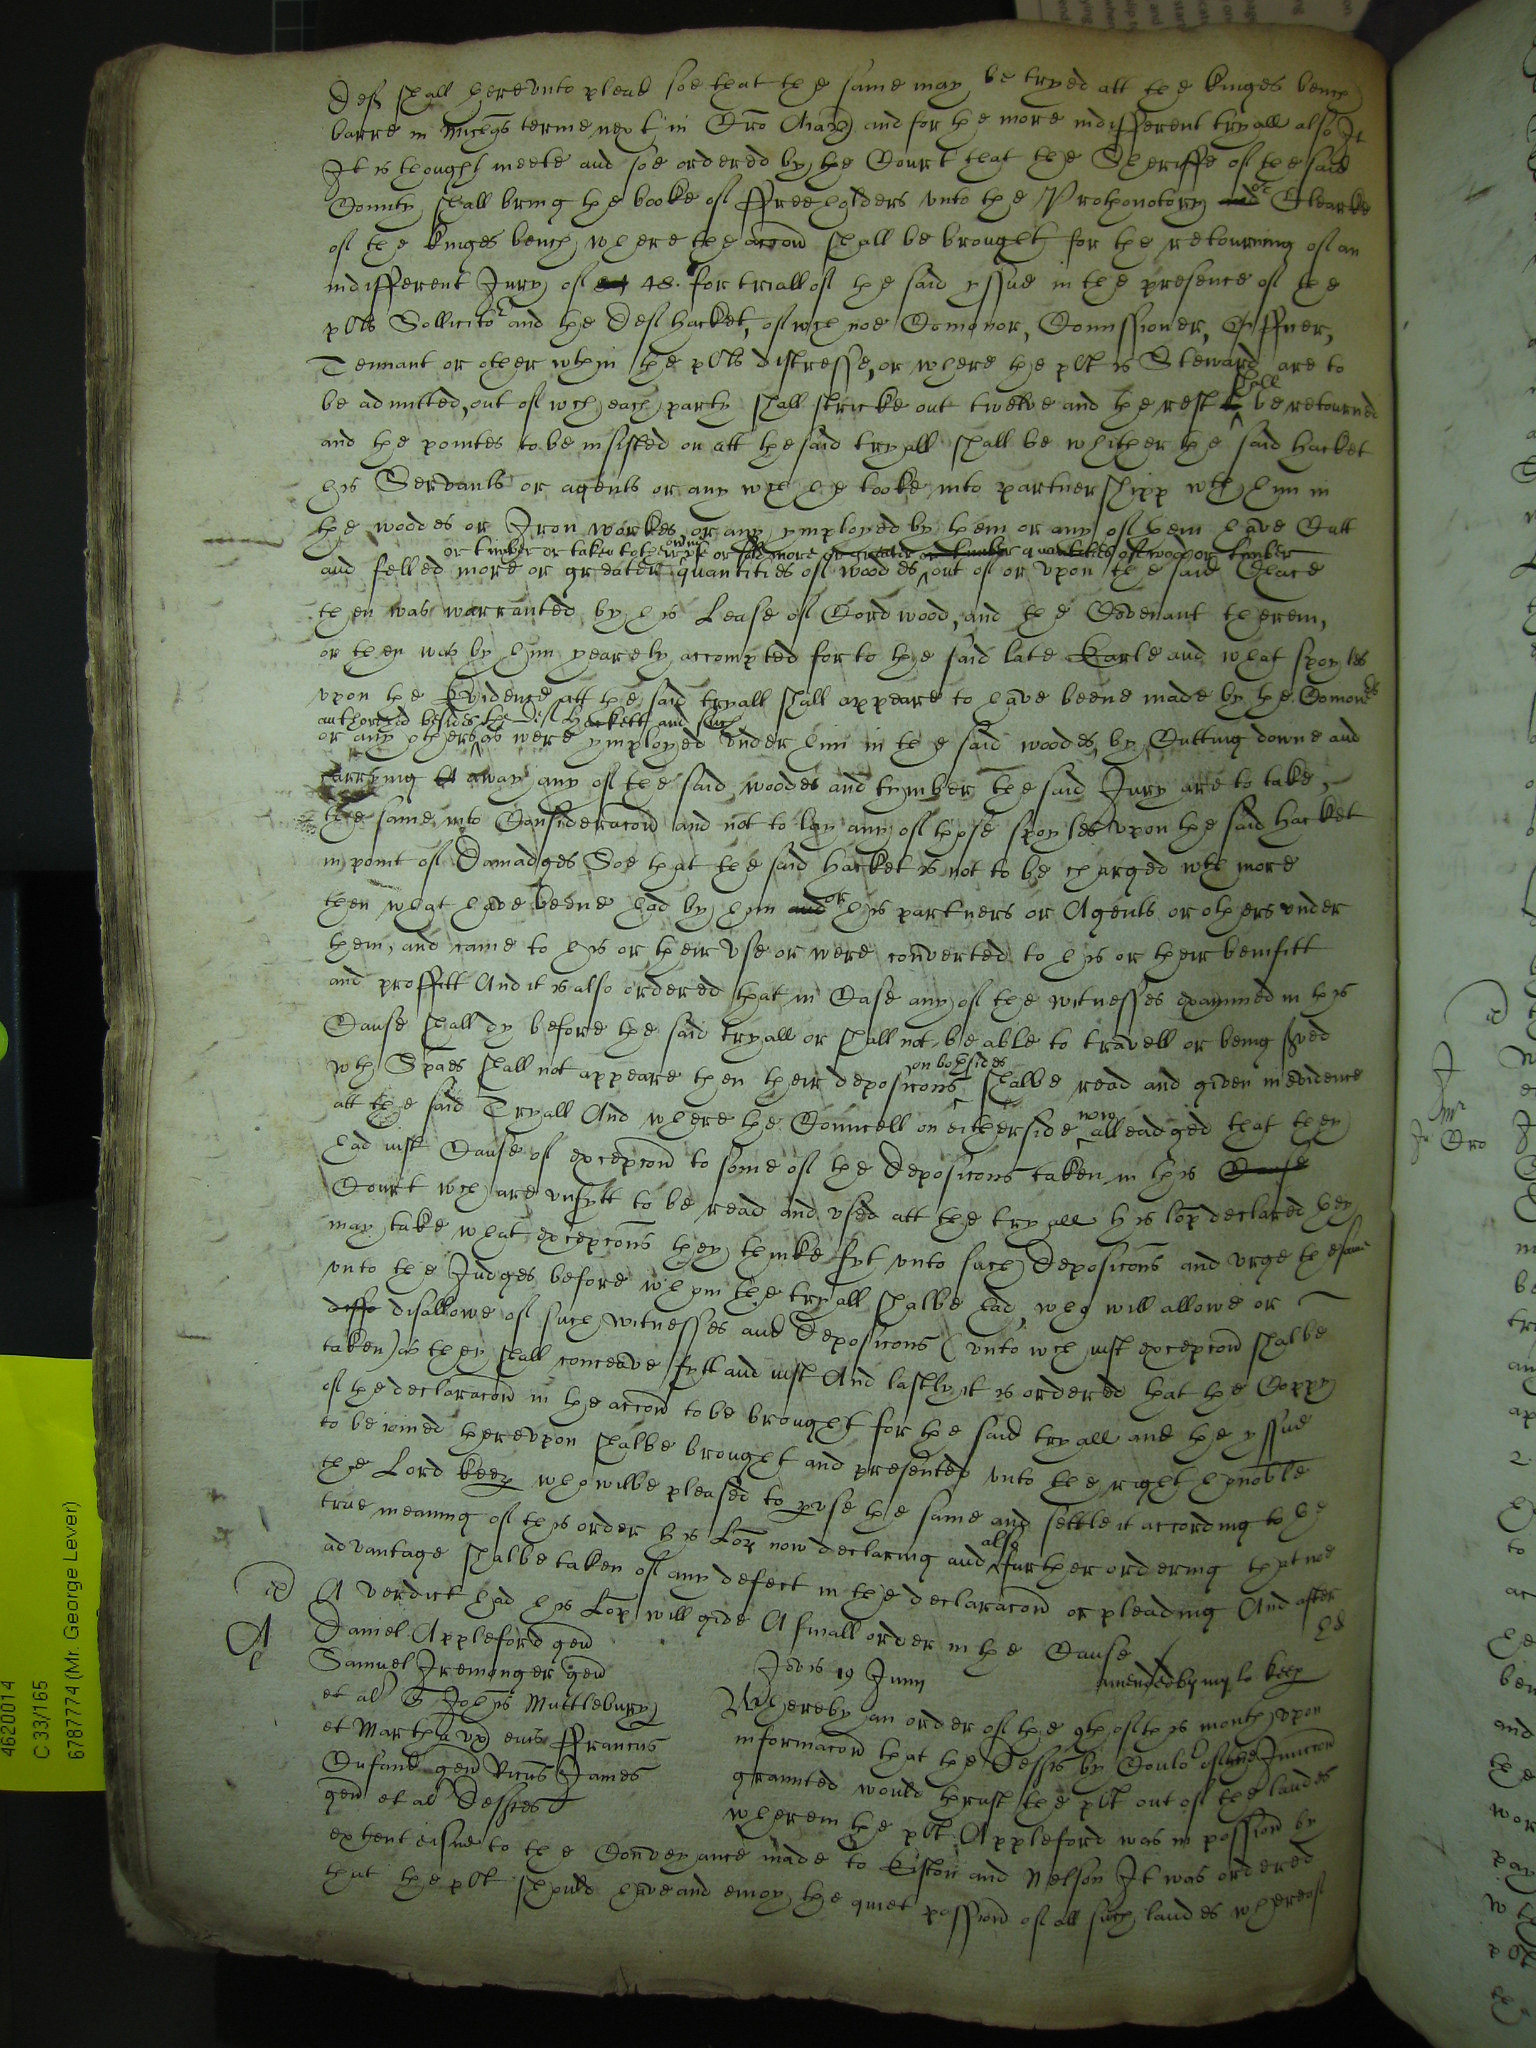 Deft shall hereunto plead soe that the same may be tryed att the kinges bench
barre in Michas terme next in Cro Aiarz and for the more indifferent tryall also It
It is thought meete and soe ordered by the Court that the Sheriffe of the said
County shall bring the booke of ffreeholders unto the Prothonotory and or Clearke
of the kinges bench where the accon shall be brought for the retourning of an
indifferent Jury of 48. for triall of the said yssue in the presence of the
plts Sollicitor and the Deft Hacket, of wch noe Comonor, Comissioner, Officer,
Tennant or other wthin the plts distresse, or where the plt is Steward are to
be admitted, out of wch each party shall stricke out twelve and the rest shall be retourned
and the pointes to be insisted on att the said tryall shall be whither the said Hacket
his Servants or agents or any wch he tooke into partnershipp wth him in
the woodes or Iron workes or any ymployed by them or any of them have Cutt
or timber or taken to their owne use or sold more or greater or timber quantities of wood or timber
and felled more or greater quantities of woodes out of or upon the said Chace
then was warranted by his Lease of Cordwood, and the Covenant therein,
or then was by him yearely accompted for to the said late Earle and what spoyles
upon the Evidence att the said tryall shall appeare to have beene made by the Comoners
authorized besides the Deft Hackett and such
or any others as were ymployed under him in the said woodes, by Cutting downe and
carrying away any of the said woodes and tymber the said Jury are to take
the same into Consideracon and not to lay any of those spoyles upon the said Hacket
in point of Damadges Soe that the said Hacket is not to be charged wth more
then what have beene had by him and or his partners or Agents or others under
them, and came to his or their use or were converted to his or their benifitt
and proffitt And it is also ordered that in Case any of the witnesses examined in this
Cause shall dy before the said tryall or shall not be able to travell or being served
wth Spaes shall not appeare then their deposicons on both sides shalbe read and given in evidence
att the said Tryall And where the Councell on either side now alleadged that they
had iust Cause of excepcon to some of the Deposicons taken in this Cause
Court wch are unfytt to be read and used att the tryall his lop declared they
may take what excepcons they thinke fytt unto such Deposicons and urge the same
unto the Judges before whom the tryall shalbe had, who will allowe or
disallowe of such witnesses and Deposicons (unto wch iust excepcon shalbe
taken) as they shall conceave fytt and iust And lastly it is ordered that the Coppy
of the declaracon in the accon to be brought for the said tryall and the yssue
to be ioined thereupon shalbe brought and presented unto the right honoble
the Lord keep who wilbe pleased to puse the same and settle it according to the
true meaning of this order his Lop now declaring and also further ordering that noe
advantage shalbe taken of any defect in the declaracon or pleading And after
A verdict had his Lop will give A finall order in the Cause
Jovis 19 Junij
amended by my lo keep
A
Daniel Appleford gen
Samuel Iremonger gen
et al Johis Muttlebury
et Martha ux eius ffrancus
Cufand gen Ricus James
gen et al Defftes
Whereby an order of the 9th of this month upon
informacon that the Deftes by Coulor of the Iniuccon
graunted would thrust the plt out of the landes
wherein the plt Appleford was in possion by
extent issued to the Convayance made to Eiston and Nelson It was ordered
that the plt should have and enioy the quiet possion of all such landes whereof
4620014
C 33/165
6787774 (Mr. George Lever)